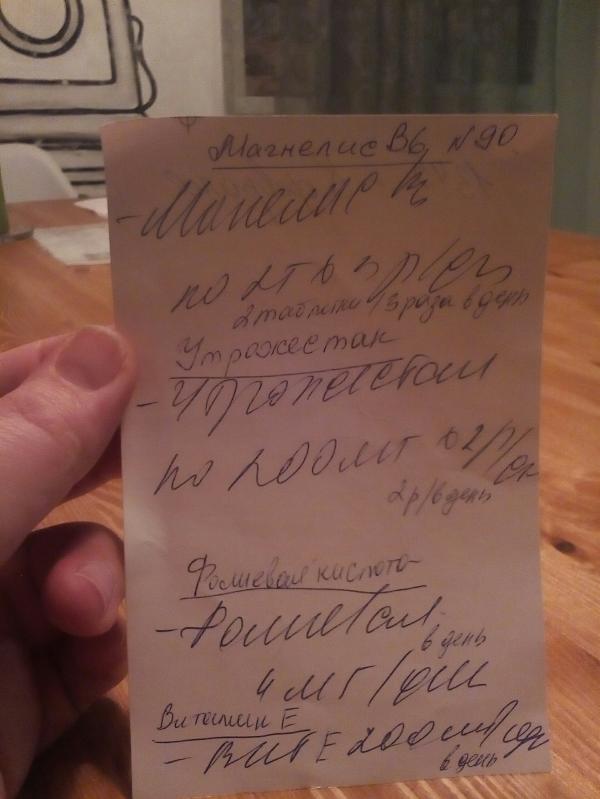 Магнелис В6 N90
- Магнелис В6
по 2т в 3 р/сут
2 таблетки 3 раза в день
Утрожестан
- Утрожестан
по 200 мг в 2 р/
2р/в день
Фолиевая кислота
- Фолиевая
в день
4 мг/дн
Витамин Е
- Вит Е 200 мг
в день